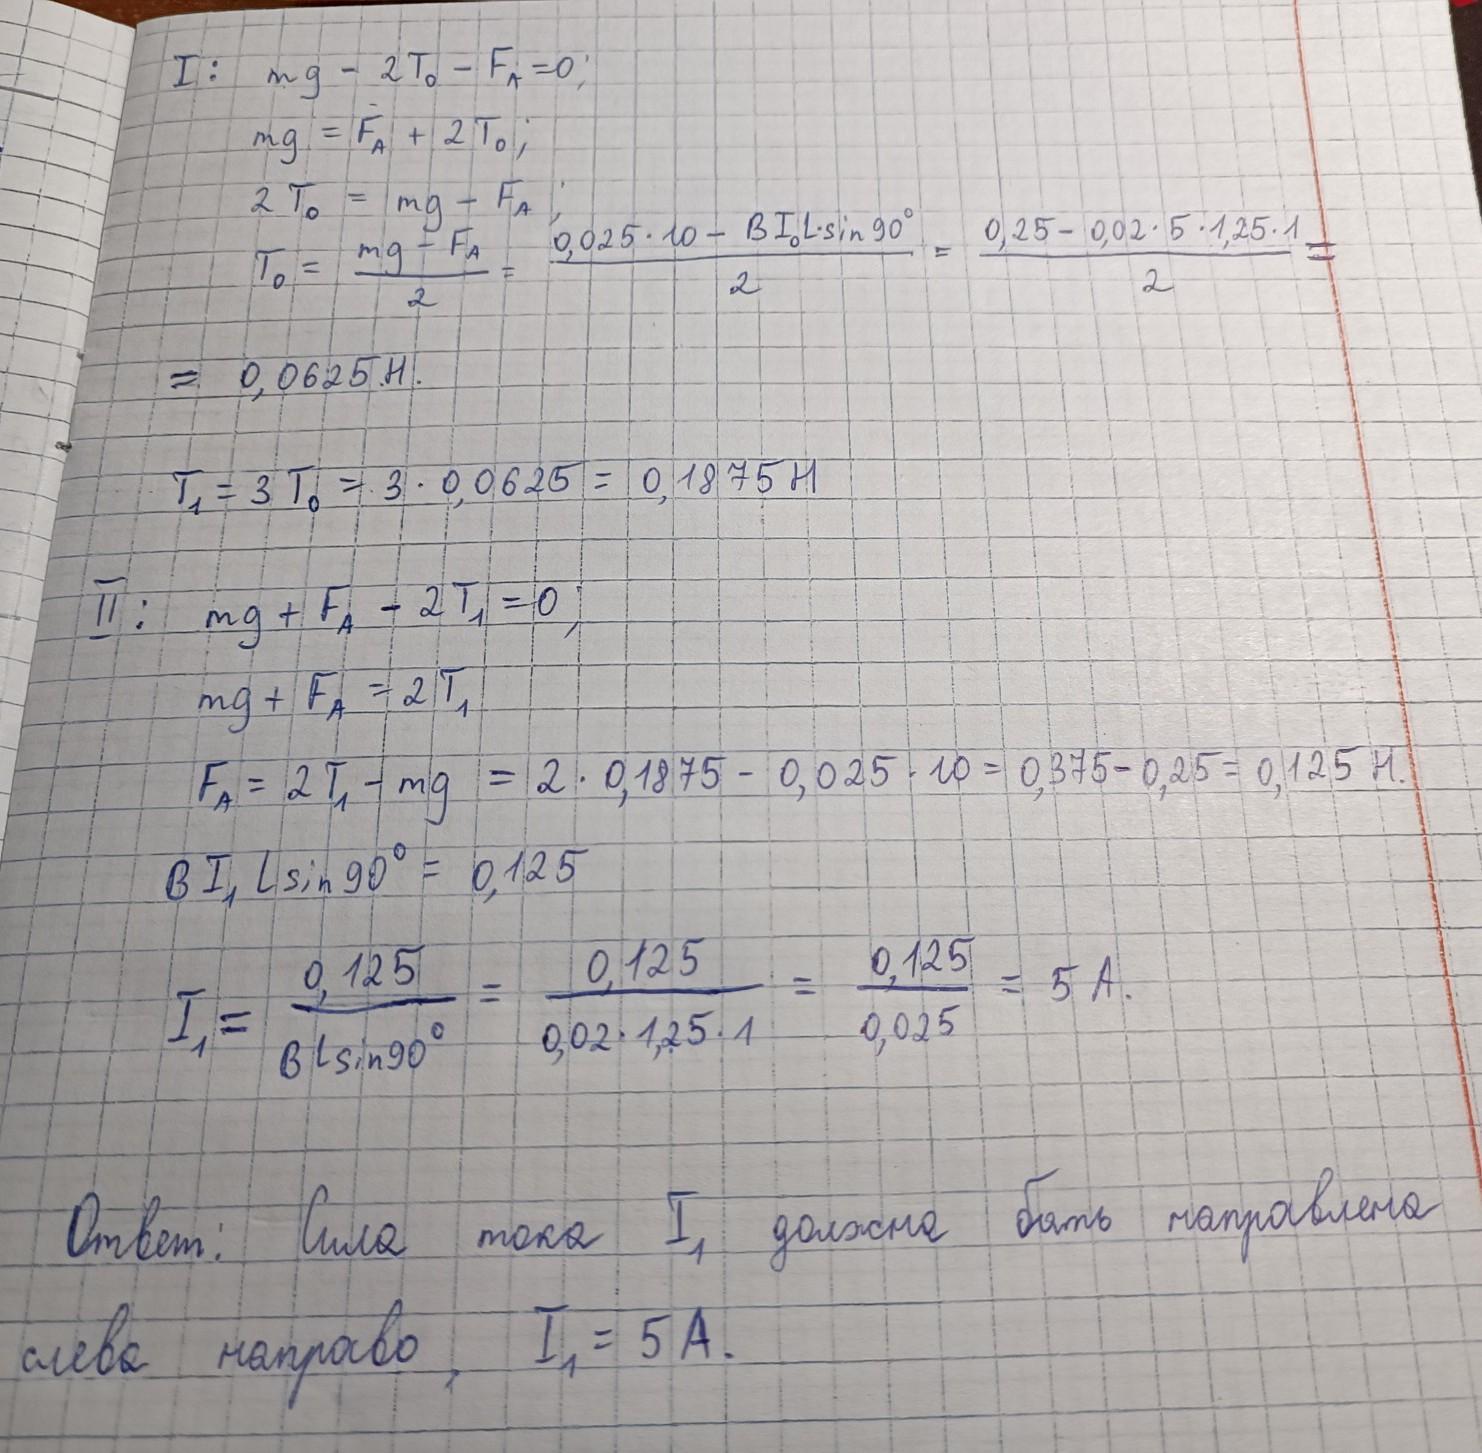 I: mg - 2T₀ - F_A = 0;
mg = F_A + 2T₀;
2T₀ = mg - F_A;
T₀ = (mg - F_A)/2 = (0,025·10 - BI₀L·sin90°)/2 = (0,25 - 0,02·5·1,25·1)/2 =
= 0,0625 Н.
T₁ = 3T₀ = 3·0,0625 = 0,1875 Н
II: mg + F_A - 2T₁ = 0;
mg + F_A = 2T₁
F_A = 2T₁ - mg = 2·0,1875 - 0,025·10 = 0,375 - 0,25 = 0,125 Н.
BI₁Lsin90° = 0,125
I₁ = 0,125/(BLsin90°) = 0,125/(0,02·1,25·1) = 0,125/0,025 = 5 А.
Ответ: Сила тока I₁ должна быть направлена
слева направо, I₁ = 5 А.